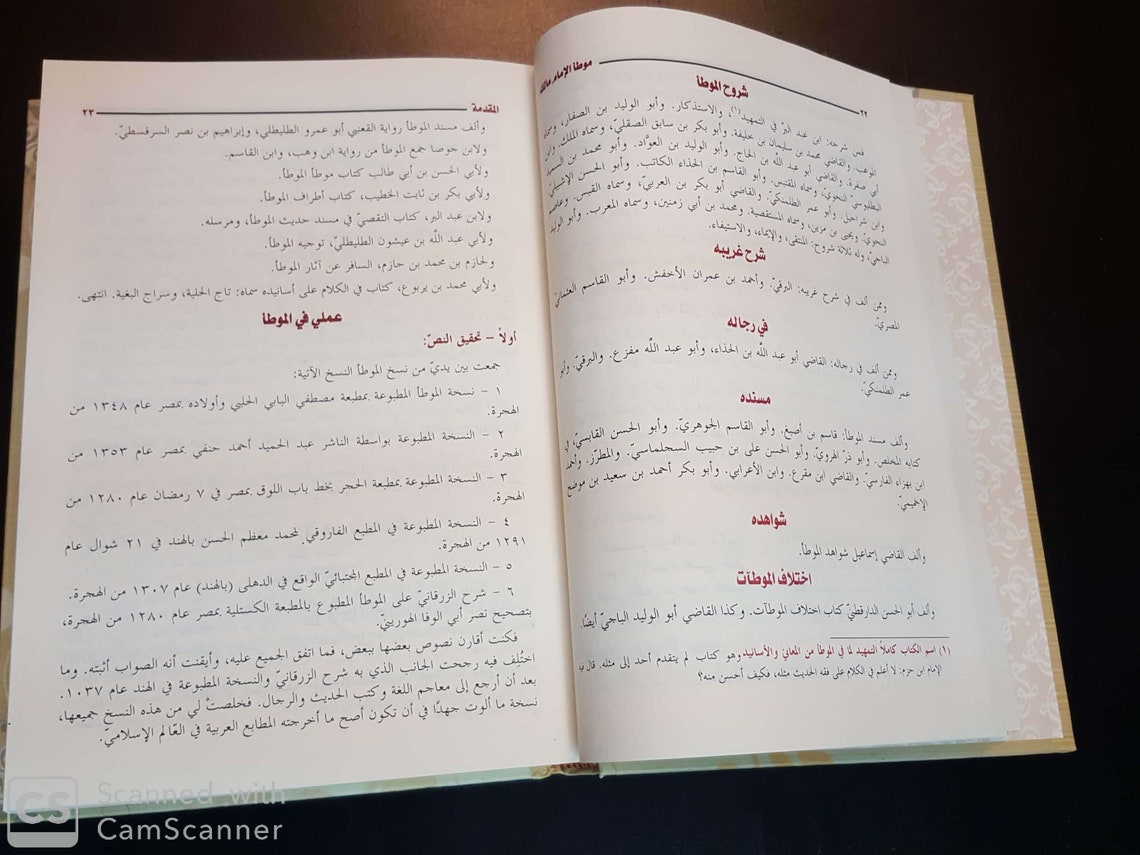 ٢٢
موطأ الإمام مالك
شروح الموطأ
فممن شرحه: ابن عبد البر في التمهيد(١)، والاستذكار. وأبو الوليد بن الصفار، وسماه
الموعب. والقاضي محمد بن سليمان بن خليفة. وأبو بكر بن سابق الصقليّ، وسماه المالك. وابن
أبي صفرة. والقاضي أبو عبد اللّه بن الحاج. وأبو الوليد بن العوّاد. وأبو محمد بن السيد
البطليوسيّ النحويّ، وسماه المقتبس. وأبو القاسم بن الحذاء الكاتب. وأبو الحسن الإشبيليّ
وابن شراحيل. وأبو عمر الطلمنكيّ. والقاضي أبو بكر بن العربيّ، وسماه القبس. وعاصم
النحويّ. ويحيى بن مزين، وسماه المستقصية. ومحمد بن أبي زمنين، وسماه المعرب. وأبو الوليد
الباجيّ، وله ثلاثة شروح: المنتقى، والإيماء، والاستيفاء.
شرح غريبه
وممن ألف في شرح غريبه: البرقيّ. وأحمد بن عمران الأخفش. وأبو القاسم العثمانيّ
المصريّ.
في رجاله
وممن ألف في رجاله: القاضي أبو عبد اللّه بن الحذاء، وأبو عبد اللّه مفزع. والبرقيّ. وأبو
عمر الطلمنكيّ.
مسنده
وألف مسند الموطأ: قاسم بن أصبغ. وأبو القاسم الجوهريّ. وأبو الحسن القابسيّ، في
كتابه الملخص. وأبو ذرّ الهرويّ. وأبو الحسن على بن حبيب السجلماسيّ. والمطرّز. وأحمد
ابن بهزاء الفارسيّ. والقاضي ابن مفرع. وابن الأعرابي. وأبو بكر أحمد بن سعيد بن موضح
الإخميميّ.
شواهده
وألف القاضي إسماعيل شواهد الموطأ.
اختلاف الموطآت
وألف أبو الحسن الدارقطنيّ كتاب اختلاف الموطآت. وكذا القاضي أبو الوليد الباجيّ أيضًا.
(١) اسم الكتاب كاملاً التمهيد لما في الموطأ من المعاني والأسانيد وهو كتاب لم يتقدم أحد إلى مثله. قال فيه
الإمام ابن حزم: لا أعلم في الكلام على فقه الحديث مثله، فكيف أحسن منه؟
المقدمة
٢٣
وألف مسند الموطأ رواية القعنبي أبو عمرو الطليطلي، وإبراهيم بن نصر السرقسطيّ.
ولابن حوصا جمع الموطأ من رواية ابن وهب، وابن القاسم.
ولأبي الحسن بن أبي طالب كتاب موطأ الموطأ.
ولأبي بكر بن ثابت الخطيب، كتاب أطراف الموطأ.
ولابن عبد البر، كتاب التقصيّ في مسند حديث الموطأ، ومرسله.
ولأبي عبد اللّه بن عيشون الطليطليّ، توجيه الموطأ.
ولحازم بن محمد بن حازم، السافر عن آثار الموطأ.
ولأبي محمد بن يربوع، كتاب في الكلام على أسانيده سماه: تاج الحلية، وسراج البغية. انتهى.
عملي في الموطأ
أولاً – تحقيق النصّ:
جمعت بين يديّ من نسخ الموطأ النسخ الآتية:
١ – نسخة الموطأ المطبوعة بمطبعة مصطفي البابي الحلبي وأولاده بمصر عام ١٣٤٨ من
الهجرة.
٢ – النسخة المطبوعة بواسطة الناشر عبد الحميد أحمد حنفي بمصر عام ١٣٥٣ من
الهجرة.
٣ – النسخة المطبوعة بمطبعة الحجر بخط باب اللوق بمصر في ٧ رمضان عام ١٢٨٠ من
الهجرة.
٤ – النسخة المطبوعة في المطبع الفاروقي لمحمد معظم الحسن بالهند في ٢١ شوال عام
١٢٩١ من الهجرة.
٥ – النسخة المطبوعة في المطبع المجتبائيّ الواقع في الدهلى (بالهند) عام ١٣٠٧ من الهجرة.
٦ – شرح الزرقانيّ على الموطأ المطبوع بالمطبعة الكستلية بمصر عام ١٢٨٠ من الهجرة،
بتصحيح نصر أبي الوفا الهورينيّ.
فكنت أقارن نصوص بعضها ببعض، فما اتفق الجميع عليه، وأيقنت أنه الصواب أثبته. وما
اختُلف فيه رجحت الجانب الذي به شرح الزرقانيّ والنسخة المطبوعة في الهند عام ١٠٣٧.
بعد أن أرجع إلى معاجم اللغة وكتب الحديث والرجال. فخلصتْ لي من هذه النسخ جميعها،
نسخة ما ألوت جهدًا في أن تكون أصح ما أخرجته المطابع العربية في العّالم الإسلاميّ.
CS
Scanned with
CamScanner